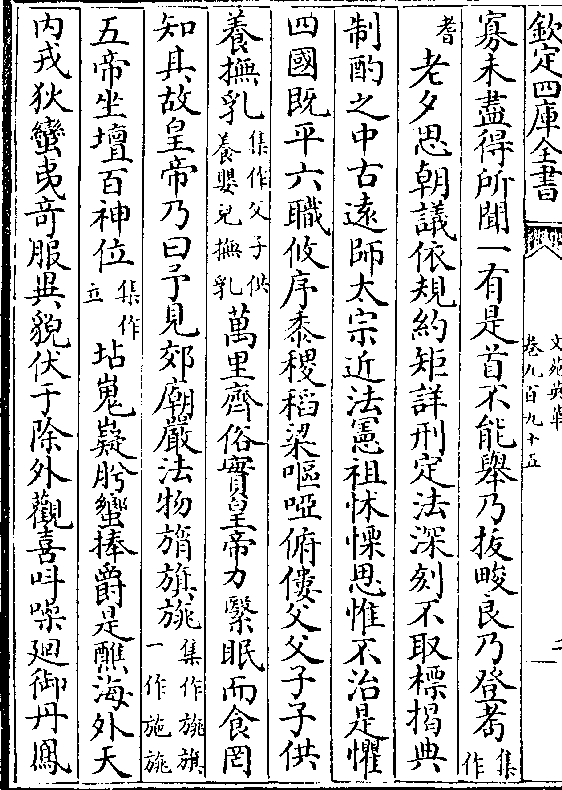 欽定四庫全書
文苑英華
卷九百九十五
寡未盡得所聞一有是首不能舉乃拔畯良乃登耈集作
耆老夕思朝議依規約矩詳刑定法深刻不取標揭典
制酌之中古遠師太宗近法憲祖怵慄思惟不治是懼
四國既平六職攸序黍稷稻梁嘔啞俯僂父父子子供
養撫乳集作父子供養嬰兒撫乳萬里齊俗實皇帝力繫眠而食罔
知其故皇帝乃曰予見郊廟嚴法物旓旗旎集作旎旗一作施旎
五帝坐壇百神位集作立坫嵬嶷肹蠁捧爵是醮海外天
内戎狄蠻夷奇服異貌伏于除外觀喜呌噪廻御丹鳳